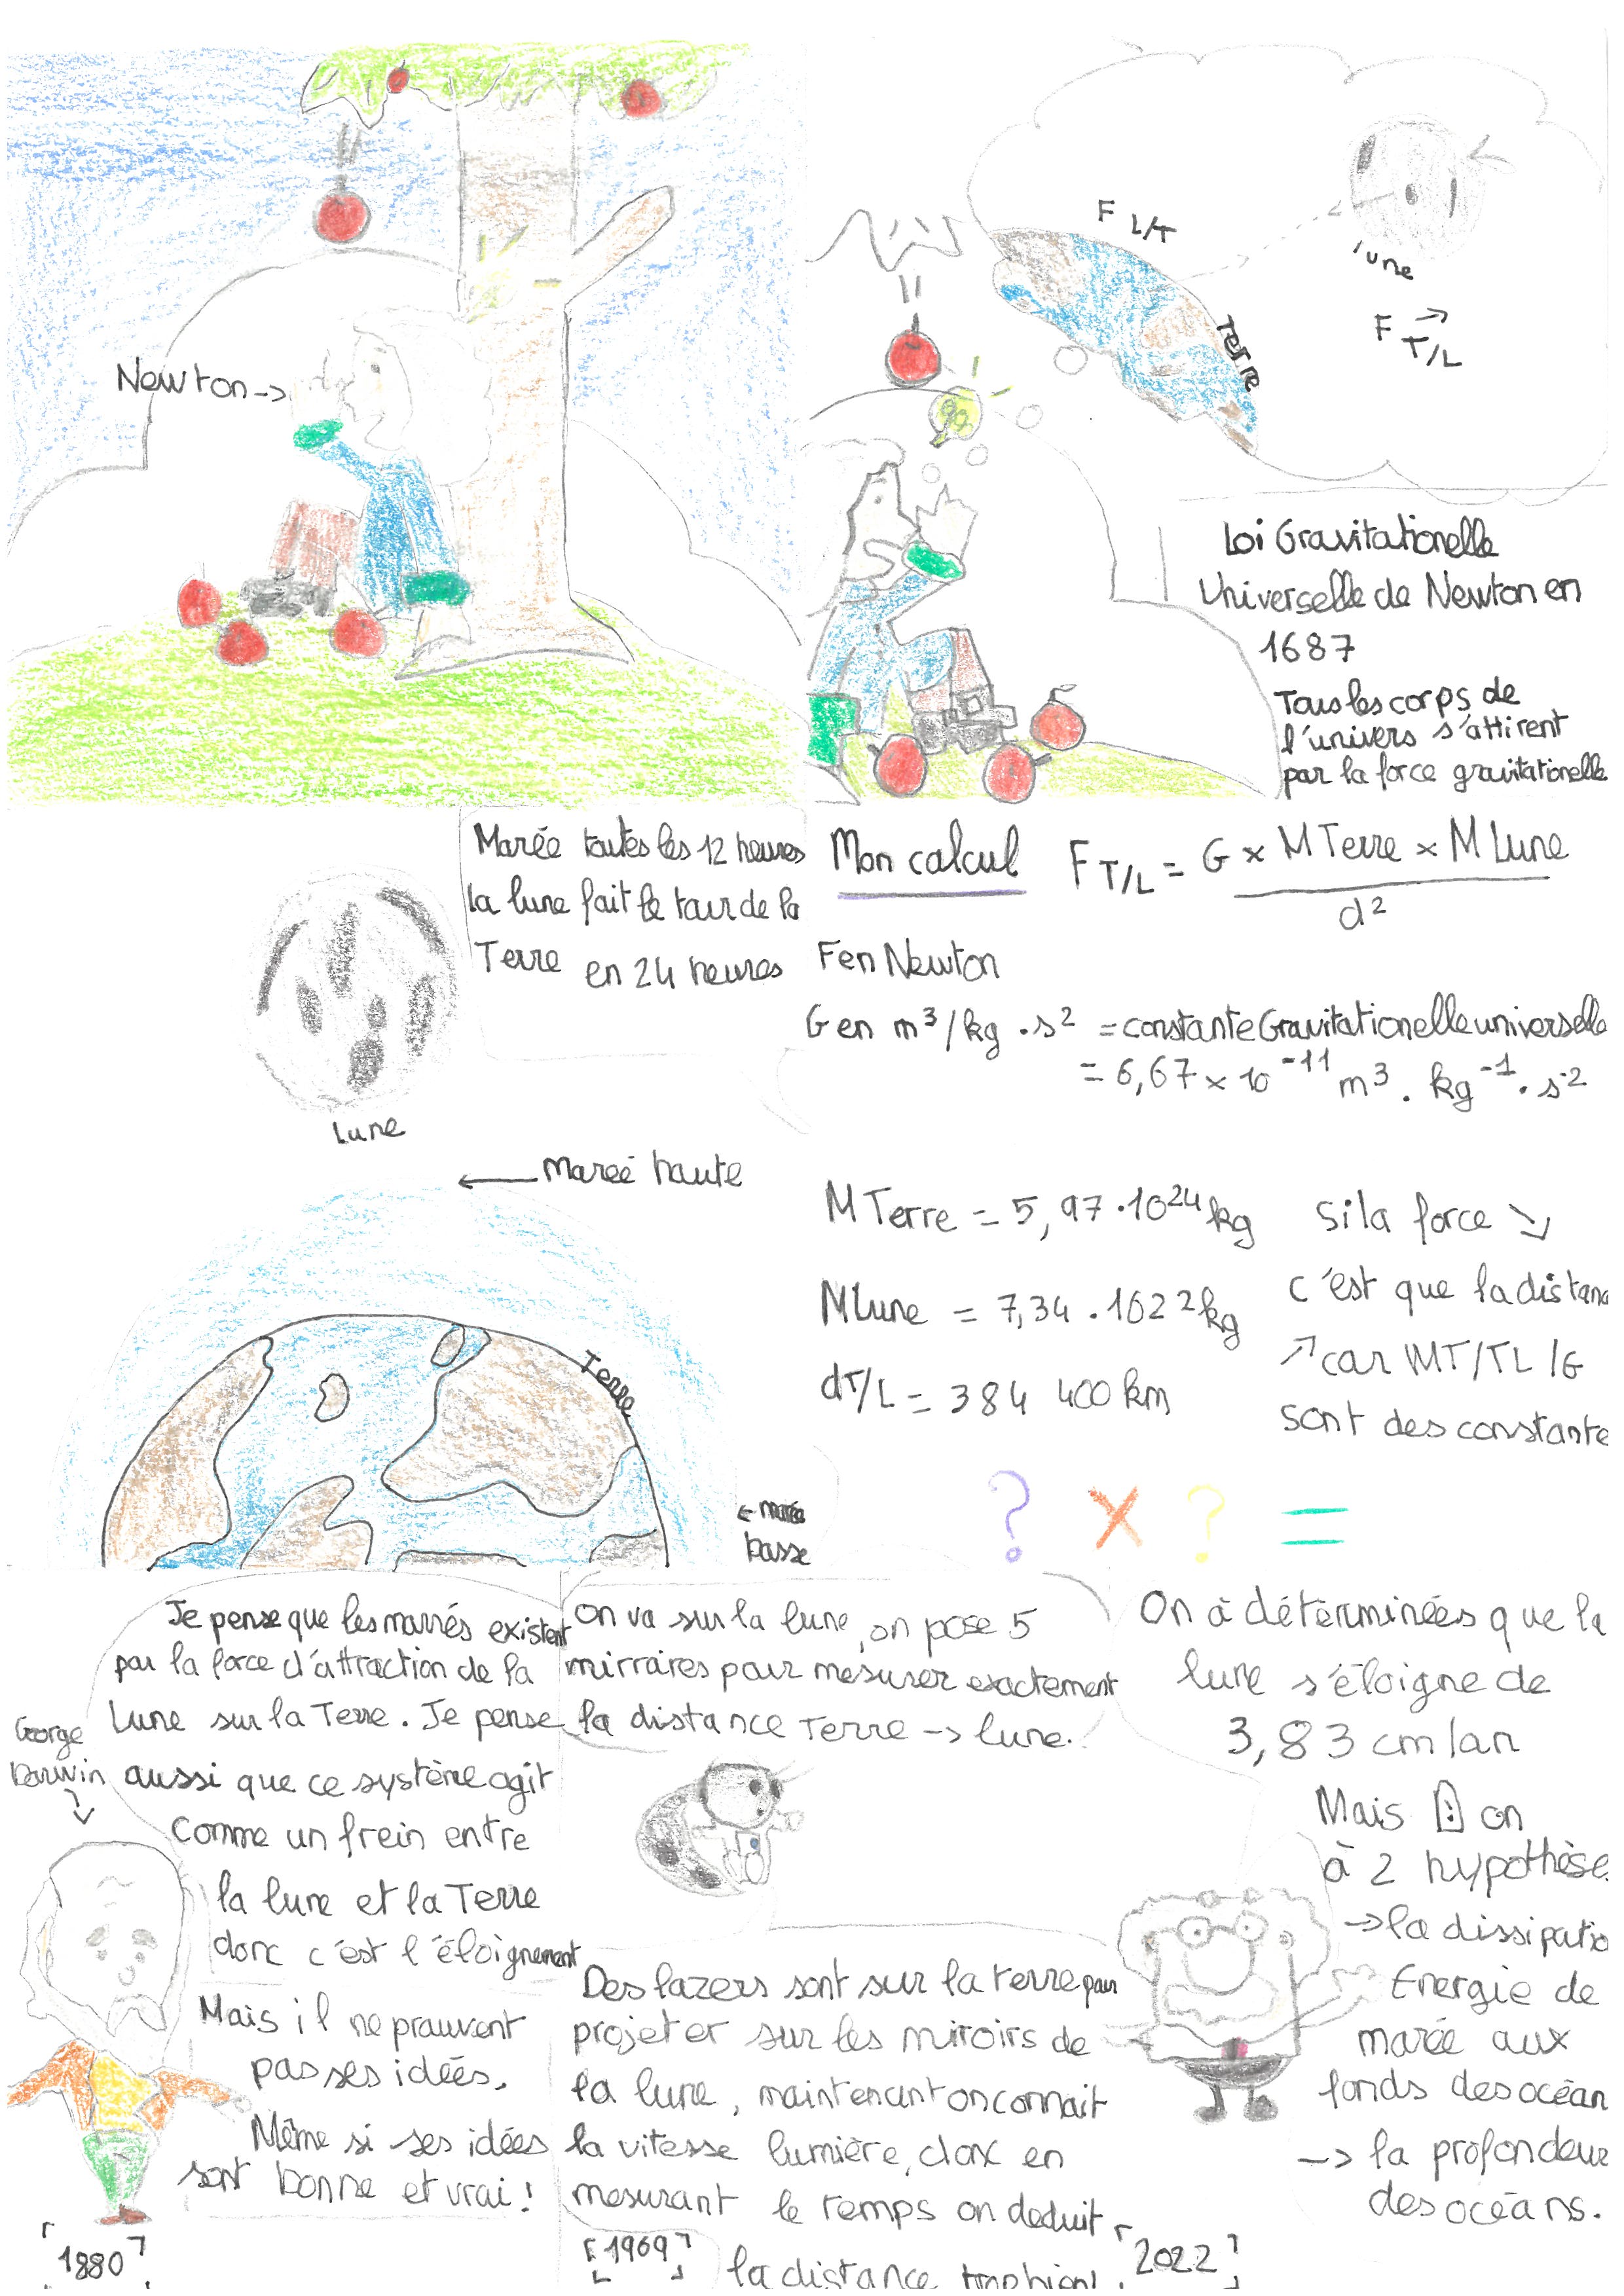 Newton →
F L/T
lune
Terre
F T/L
Loi Gravitationelle
Universelle de Newton en
1687
Tous les corps de
l'univers s'attirent
par la force gravitationelle
Marée toutes les 12 heures
la lune fait le tour de la
Terre en 24 heures
Lune
← Mareé haute
Terre
← marée
basse
Mon calcul F T/L = G × M Terre × M Lune
d²
F en Newton
G en m³/kg . s² = constante Gravitationelle universelle
= 6,67 × 10⁻¹¹ m³ . kg⁻¹ . s⁻²
M Terre = 5,97 . 10²⁴ kg
M Lune = 7,34 . 10²² kg
dT/L = 384 400 km
Si la force ↘
c'est que la distanc
↗ car MT/TL/G
sont des constante
? × ? =
Je pense que les marrés existent
par la force d'attraction de la
Lune sur la Terre. Je pense
aussi que ce système agit
comme un frein entre
la lune et la Terre
donc c'est l'éloignement
George
Darwin
Mais il ne prouvent
pas ses idées.
Même si ses idées
sont bonne et vrai !
1880
On va sur la lune, on pose 5
mirraires pour mesurer exactement
la distance Terre → lune.
Des lazers sont sur la terre pour
projeter sur les miroirs de
la lune, maintenant on connait
la vitesse lumière, donc en
mesurant le temps on deduit
la distance trop bien !
1969
On à déterminées que la
lune s'éloigne de
3,83 cm/an
Mais ! on
à 2 hypothèse
→ la dissipatio
Energie de
marée aux
fonds des océan
→ la profondeur
des océans.
2022